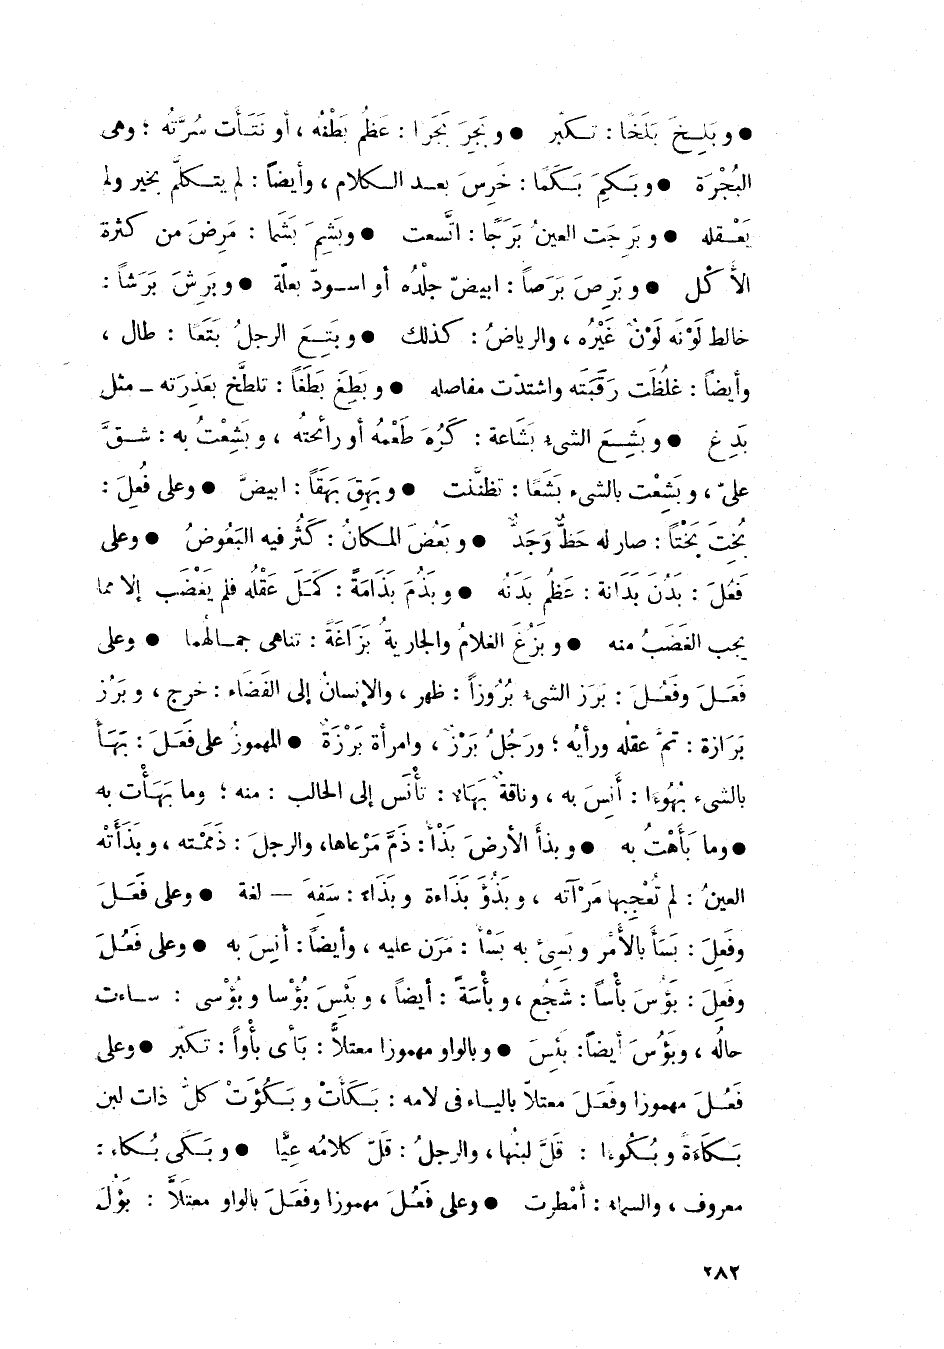 ● وبَلِخَ بَلَخًا : تكبّر ● وبَجِرَ بَجَرا : عَظُم بَطْنُه ، أو نَتَأت سُرَّتُه ؛ وهى
البُجْرَة ● وبَكِمَ بَكَمًا : خَرِسَ بعد الكلام ، وأيضاً : لم يتكلّم بخير ولم
يَعْقله ● وبَرِجَت العينُ بَرَجًا : اتَّسعت ● وبَشِمَ بَشَما : مَرِضَ من كثرة
الأكْل ● وبَرِصَ بَرَصاً : ابيضّ جلْدُه أو اسودّ بعلّة ● وبَرِشَ بَرَشاً :
خالط لَوْنَه لَوْنٌ غَيْرُه ، والرياضُ : كذلك ● وبَتِعَ الرجلُ بَتَعًا : طال ،
وأيضاً : غلُظَت رَقَبَتَه واشتدّت مفاصله ● وبَطِغَ بَطَغاً : تلطّخ بعَذِرَته ــ مثل
بَدِغ ● وبَشِعَ الشىء بَشَاعة : كَرُهَ طَعْمُه أو رائحتُه ، وبَشِعْتُ به : شقَّ
علىّ ، وبَشِعْت بالشىء بَشَعًا : تظنَّنت ● وبَهِقَ بَهَقاً : ابيضَّ ● وعلى فُعِلَ :
بُخِتَ بَخْتاً : صار له حَظٌّ وَجَدٌّ ● وبَعُضَ المكانُ : كَثُر فيه البَعُوضُ ● وعلى
فَعُلَ : بَدُنَ بَدَانة : عَظُم بَدَنُه ● وبَذُمَ بَذَامَةً : كَمَلَ عَقْلُه فلم يَغْضَب إلا مما
يجب الغَضَبُ منه ● وبَزُغَ الغلامُ والجاريةُ بَزَاغَةً : تناهى جمالُهما ● وعلى
فَعَلَ وفَعُلَ : بَرَز الشىء بُرُوزاً : ظهر ، والإنسانُ إلى الفَضَاء : خرج ، وبَرُز
بَرَازة : تمَّ عقلُه ورأيُه ؛ ورَجُلُ بَرْزٌ ، وامرأة بَرْزَةٌ ● المهموزُ على فَعَلَ : بَهَأَ
بالشىء بُهُوءا : أَنِسَ به ، وناقةٌ بَهَاء : تأْنَس إلى الحالب : منه ؛ وما بَهَأْت به
● وما بَأَهْتُ به ● وبذأَ الأرضَ بَذْأً : ذَمَّ مَرْعاها، والرجلَ : ذَمَمْته ، وبَذَأَتْه
العينُ : لم تُعْجِبها مَرْآته ، وبَذُؤَ بَذَاءة وبَذَاء : سَفِهَ — لغة ● وعلى فَعَلَ
وفَعِلَ : بَسَأَ بالأَمْرِ وبَسِئَ به بَسْأً : مَرَن عليه ، وأيضاً : أَنِسَ به ● وعلى فَعُلَ
وفَعِلَ : بَؤُسَ بأْساً : شَجُع ، وبأْسَةً : أيضاً ، وبَئِسَ بُؤْسا وبُؤْسى : ساءت
حالُه ، وبَؤُسَ أيضاً: بئِسَ ● وبالواو مهموزا معتلاًّ : بَأَى بأْواً : تكبّر ● وعلى
فَعُلَ مهموزا وفَعَلَ معتلاّ بالياء فى لامه : بَكَأَتْ وبَكُؤَتْ كلُّ ذات لبن
بَكَاءةً وبُكُوءا : قَلَّ لبنُها ، والرجلُ : قَلّ كلامُه عِيًّا ● وبَكَى بُكاء :
معروف ، والسماء : أمْطرت ● وعلى فَعُلَ مهموزا وفَعَلَ بالواو معتلاًّ : بَؤُلَ
٢٨٢